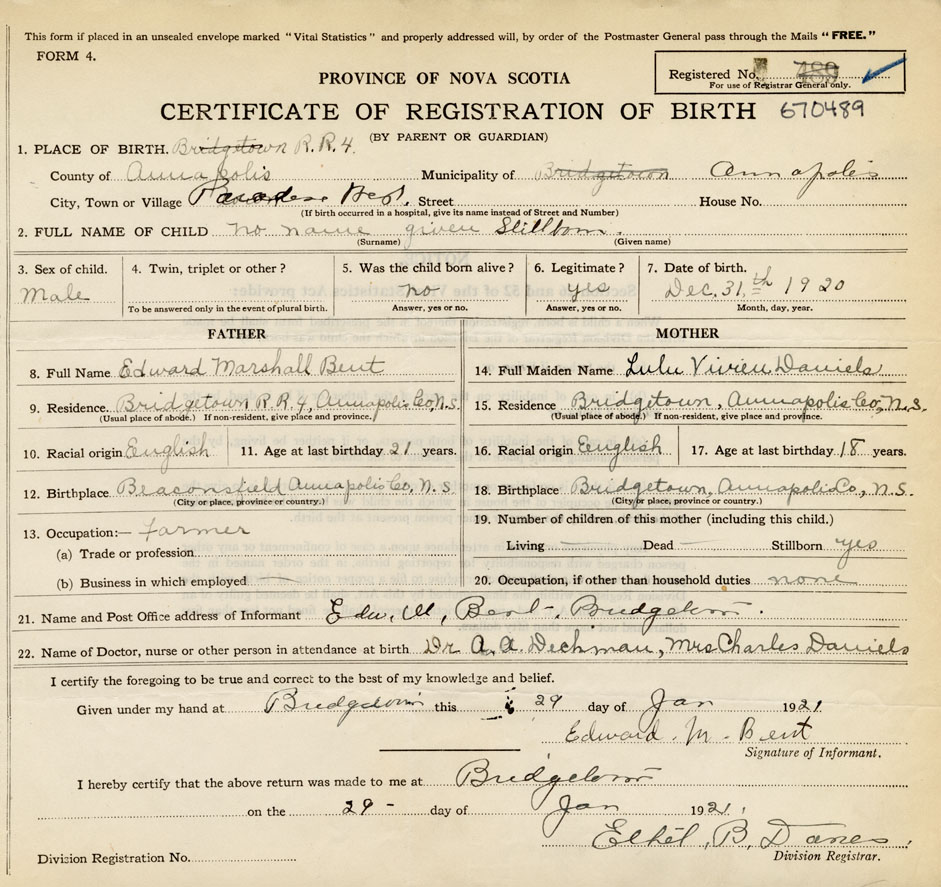 This form if placed in an unsealed envelope marked "Vital Statistics" and properly addressed will, by order of the Postmaster General pass through the Mails "FREE."
FORM 4.
Registered No. 489
For use of Registrar General only.
PROVINCE OF NOVA SCOTIA
CERTIFICATE OF REGISTRATION OF BIRTH 670489
(BY PARENT OR GUARDIAN)
1. PLACE OF BIRTH. Bridgetown R.R.4.
County of Annapolis Municipality of Bridgetown Annapolis
City, Town or Village Street House No.
(If birth occurred in a hospital, give its name instead of Street and Number)
2. FULL NAME OF CHILD no name given Stillborn.
(Surname) (Given name)
3. Sex of child. 4. Twin, triplet or other? 5. Was the child born alive? 6. Legitimate? 7. Date of birth.
Male no yes Dec, 31,th 1920
To be answered only in the event of plural birth. Answer, yes or no. Answer, yes or no. Month, day, year.
FATHER MOTHER
8. Full Name Edward Marshall Bent 14. Full Maiden Name Lulu Vivien Daniels
9. Residence. Bridgetown R.R.4, Annapolis Co, N.S. 15. Residence Bridgetown, Annapolis Co, N.S.
(Usual place of abode.) If non-resident, give place and province. (Usual place of abode.) If non-resident, give place and province.
10. Racial origin English 11. Age at last birthday 21 years. 16. Racial origin English 17. Age at last birthday 18 years.
12. Birthplace Beaconsfield Annapolis Co, N.S. 18. Birthplace Bridgetown, Annapolis Co, N.S.
(City or place, province or country.) (City or place, province or country.)
13. Occupation:— Farmer 19. Number of children of this mother (including this child.)
(a) Trade or profession Living — Dead — Stillborn yes
(b) Business in which employed — 20. Occupation, if other than household duties none
21. Name and Post Office address of Informant Edw. M. Bent - Bridgetown.
22. Name of Doctor, nurse or other person in attendance at birth Dr A. A. Dechman, Mrs Charles Daniels
I certify the foregoing to be true and correct to the best of my knowledge and belief.
Given under my hand at Bridgetown this 29 day of Jan 1921.
Edward. M. Bent
Signature of Informant.
I hereby certify that the above return was made to me at Bridgetown
on the 29 - day of Jan 1921.
Ethel, B.
Division Registration No. Division Registrar.